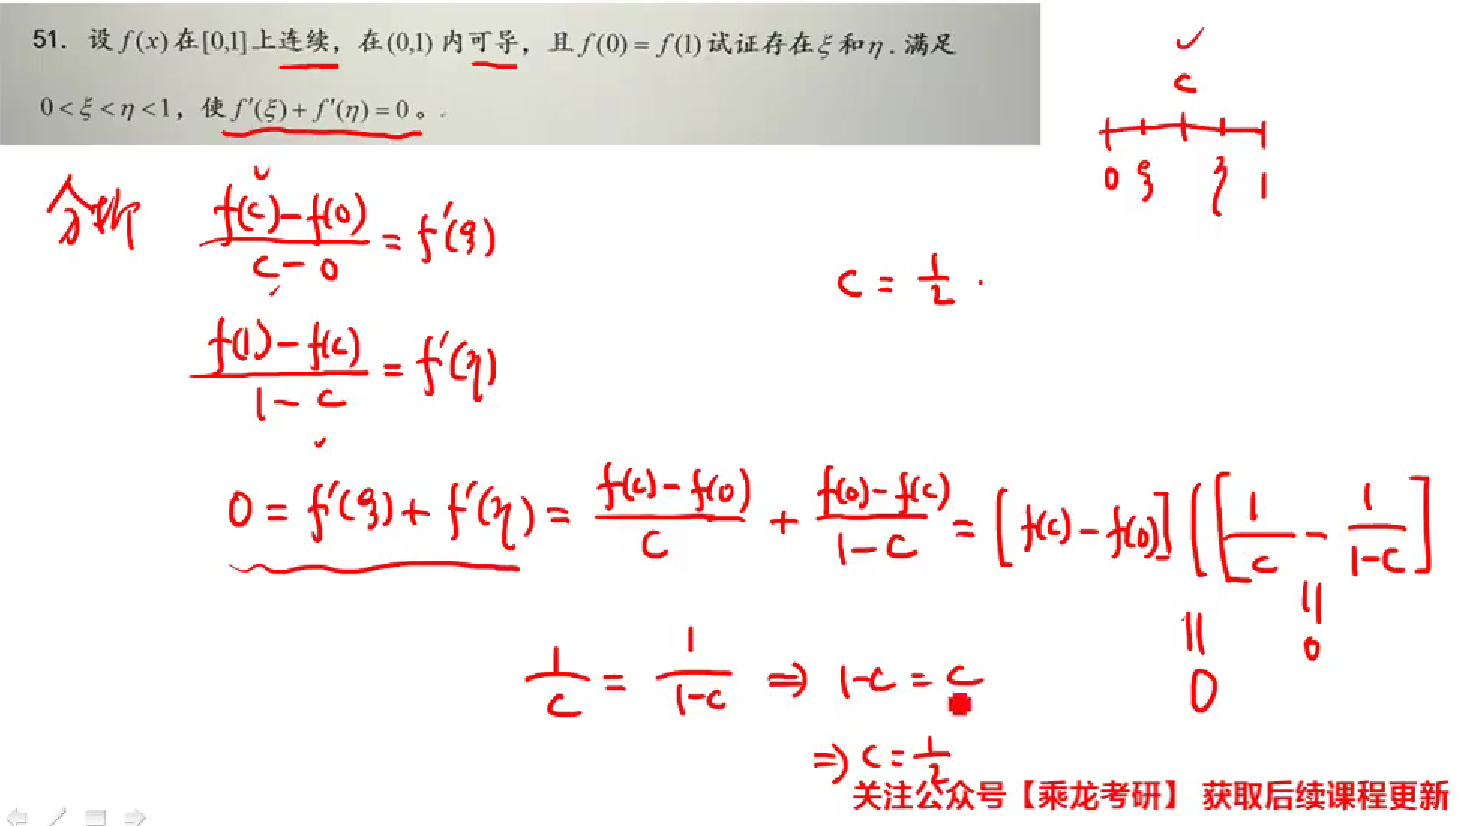 51. 设 f(x) 在 [0,1] 上连续，在 (0,1) 内可导，且 f(0) = f(1) 试证存在 ξ 和 η . 满足
0 < ξ < η < 1，使 f′(ξ) + f′(η) = 0 。
c
0 ξ η 1
分析 (f(c) − f(0))/(c − 0) = f′(ξ)
c = 1/2
(f(1) − f(c))/(1 − c) = f′(η)
0 = f′(ξ) + f′(η) = (f(c) − f(0))/c + (f(0) − f(c))/(1 − c) = [f(c) − f(0)] [1/c − 1/(1−c)]
|| ||
0 0
1/c = 1/(1−c) ⇒ 1−c = c
⇒ c = 1/2
关注公众号【乘龙考研】 获取后续课程更新